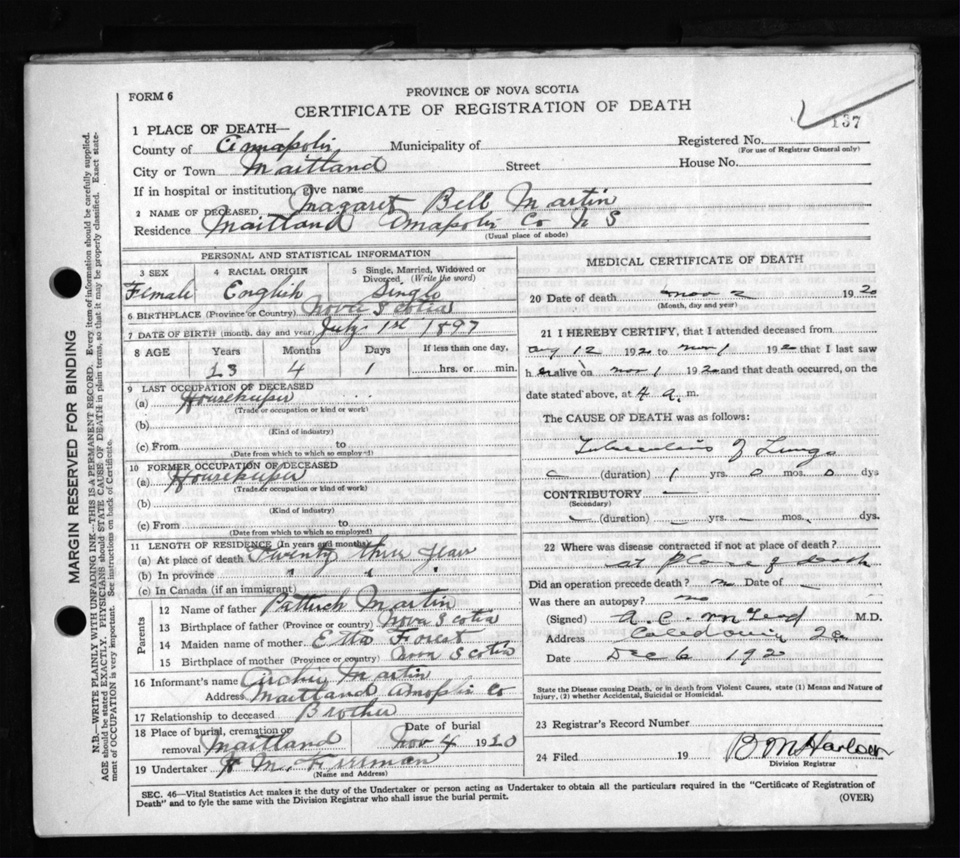 FORM 6
PROVINCE OF NOVA SCOTIA
CERTIFICATE OF REGISTRATION OF DEATH
137
1 PLACE OF DEATH—
County of Annapolis Municipality of Registered No.
(For use of Registrar General only)
City or Town Maitland Street House No.
If in hospital or institution, give name
2 NAME OF DECEASED Magaret Bell Martin
Residence Maitland Anapolis Co N S
(Usual place of abode)
PERSONAL AND STATISTICAL INFORMATION
3 SEX 4 RACIAL ORIGIN 5 Single, Married, Widowed or Divorced (Write the word)
Female English Single
6 BIRTHPLACE (Province or Country) Nova Scotia
7 DATE OF BIRTH (month, day and year) July 1st 1897
8 AGE Years Months Days If less than one day,
23 4 1 hrs. or min.
9 LAST OCCUPATION OF DECEASED
(a) Housekeeper
(Trade or occupation or kind or work)
(b)
(Kind of industry)
(c) From to
(Date from which to which so employed)
10 FORMER OCCUPATION OF DECEASED
(a) Housekeeper
(Trade or occupation or kind of work)
(b)
(Kind of industry)
(c) From to
(Date from which to which so employed)
11 LENGTH OF RESIDENCE (In years and months)
(a) At place of death Twenty three years
(b) In province " " "
(c) In Canada (if an immigrant)
Parents
12 Name of father Patrick Martin
13 Birthplace of father (Province or country) Nova Scotia
14 Maiden name of mother Etta Forest
15 Birthplace of mother (Province or country) Nova Scotia
16 Informant's name Archie Martin
Address Maitland Co
17 Relationship to deceased Brother
18 Place of burial, cremation or removal Maitland Date of burial Nov 4 1920
19 Undertaker H M. Freeman
(Name and Address)
MEDICAL CERTIFICATE OF DEATH
20 Date of death Nov 2 1920
(Month, day and year)
21 I HEREBY CERTIFY, that I attended deceased from
Aug 12 1920 to Nov 1 1920 that I last saw
h er alive on Nov 1 1920 and that death occurred, on the
date stated above, at 4 a. m.
The CAUSE OF DEATH was as follows:
Tuberculosis of Lungs
(duration) 1 yrs. 0 mos. 0 dys
CONTRIBUTORY —
(Secondary)
(duration) — yrs. — mos. dys.
22 Where was disease contracted if not at place of death?
at place of death
Did an operation precede death? no Date of —
Was there an autopsy? no
(Signed) A. C. M.D.
Address Caledonia
Date Dec 6 192
State the Disease causing Death, or in death from Violent Causes, state (1) Means and Nature of
Injury, (2) whether Accidental, Suicidal or Homicidal.
23 Registrar's Record Number
24 Filed 19 B M Harlow
Division Registrar
SEC. 46—Vital Statistics Act makes it the duty of the Undertaker or person acting as Undertaker to obtain all the particulars required in the "Certificate of Registration of
Death" and to fyle the same with the Division Registrar who shall issue the burial permit.
(OVER)
MARGIN RESERVED FOR BINDING
N.B.—WRITE PLAINLY WITH UNFADING INK—THIS IS A PERMANENT RECORD. Every item of information should be carefully supplied.
AGE should be stated EXACTLY. PHYSICIANS should STATE CAUSE OF DEATH in plain terms, so that it may be properly classified. Exact state-
ment of OCCUPATION is very important. See instructions on back of Certificate.